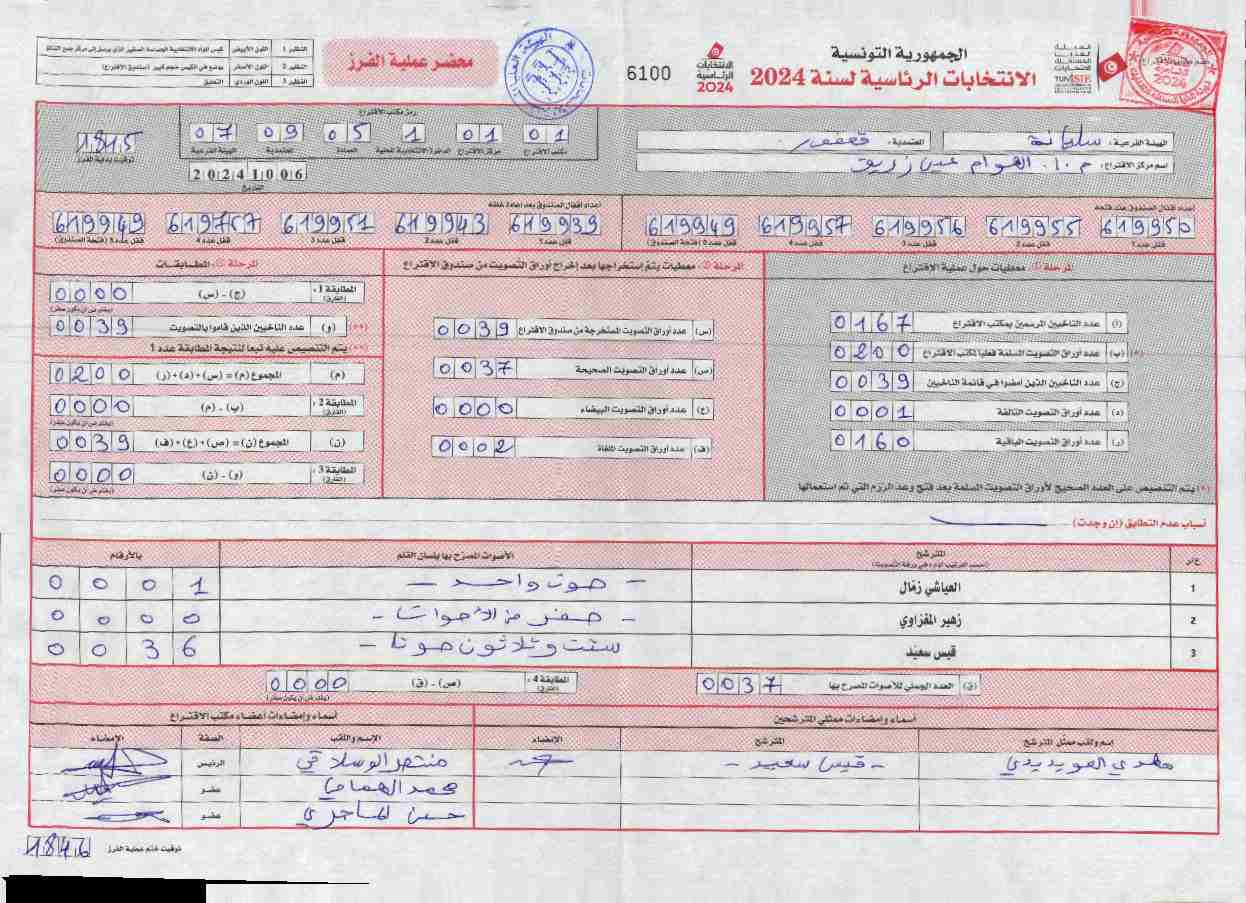 الجمهورية التونسية
الانتخابات الرئاسية لسنة 2024
الانتخابات الرئاسية 2024
6100
محضر عملية الفرز
النظير 1 اللون الأبيض
النظير 2 اللون الأصفر يوضع في الكيس حجم كبير (صندوق الاقتراع)
النظير 3 اللون الوردي التعليق
الهيئة الفرعية : سليانة
المعتمدية :
اسم مركز الاقتراع : م.ا. العوام عين زريق
رمز مكتب الاقتراع
01 01 1 05 09 07
مكتب الاقتراع مركز الاقتراع الدائرة الانتخابية المحلية العمادة المعتمدية الهيئة الفرعية
1815
توقيت بداية الفرز
20241006
التاريخ
أعداد أقفال الصندوق عند فتحه
619950 619955 619956 619957 619949
قفل عدد 1 قفل عدد 2 قفل عدد 3 قفل عدد 4 قفل عدد 5 (فتحة الصندوق)
أعداد أقفال الصندوق بعد إعادة غلقه
619939 619943 619951 619757 619949
قفل عدد 1 قفل عدد 2 قفل عدد 3 قفل عدد 4 قفل عدد 5 (فتحة الصندوق)
المرحلة 1 : معطيات حول عملية الاقتراع
(أ) عدد الناخبين المرسمين بمكتب الاقتراع 0167
(*) (ب) عدد أوراق التصويت المسلمة فعليا لمكتب الاقتراع 0200
(ج) عدد الناخبين الذين أمضوا في قائمة الناخبين 0039
(د) عدد أوراق التصويت التالفة 0001
(ر) عدد أوراق التصويت الباقية 0160
(*) يتم التنصيص على العدد الصحيح لأوراق التصويت المسلمة بعد فتح وعد الرزم التي تم استعمالها
المرحلة 2 : معطيات يتم إستخراجها بعد إخراج أوراق التصويت من صندوق الاقتراع
(س) عدد أوراق التصويت المستخرجة من صندوق الاقتراع 0039
(ص) عدد أوراق التصويت الصحيحة 0037
(ع) عدد أوراق التصويت البيضاء 0000
(ف) عدد أوراق التصويت الملغاة 0002
المرحلة 3 : المطابقات
المطابقة 1 : (الفارق) (ج) - (س) 0000
(يفترض أن يكون صفر)
(**) (و) عدد الناخبين الذين قاموا بالتصويت 0039
(**) يتم التنصيص عليه تبعا لنتيجة المطابقة عدد 1
(م) المجموع (م) = (س) + (د) + (ر) 0200
المطابقة 2 : (الفارق) (ب) - (م) 0000
(يفترض أن يكون صفر)
(ن) المجموع (ن) = (ص) + (ع) + (ف) 0039
المطابقة 3 : (الفارق) (و) - (ن) 0000
(يفترض أن يكون صفر)
أسباب عدم التطابق (إن وجدت)
ع/ر المترشح الأصوات المصرح بها بلسان القلم بالأرقام
(حسب الترتيب الوارد في ورقة التصويت)
1 العياشي زمّال - صوت واحد - 0001
2 زهير المغزاوي - صفر من الأصوات - 0000
3 قيس سعيّد ستت وثلاثون صوتا - 0036
(ق) العدد الجملي للأصوات المصرح بها 0037
المطابقة 4 : (الفارق) (ص) - (ق) 0000
(يفترض أن يكون صفر)
أسماء وإمضاءات ممثلي المترشحين
اسم ولقب ممثل المترشح المترشح الإمضاء
مهدي العويديدي - قيس سعيد -
أسماء وإمضاءات أعضاء مكتب الاقتراع
الإسم واللقب الصفة الإمضاء
منتصر الوسلاتي الرئيس
محمد الهمامي عضو
حسن الماجري عضو
1846 توقيت ختم عملية الفرز